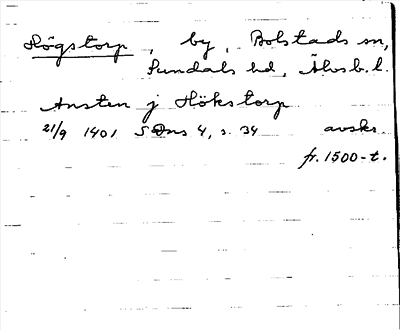 Högstorp, by, Bolstads sn,
Sundals hd, Älvsb. l.
Ansten j Hökstorp
21/9 1401 SDns 4, s. 34 avskr.
fr. 1500-t.